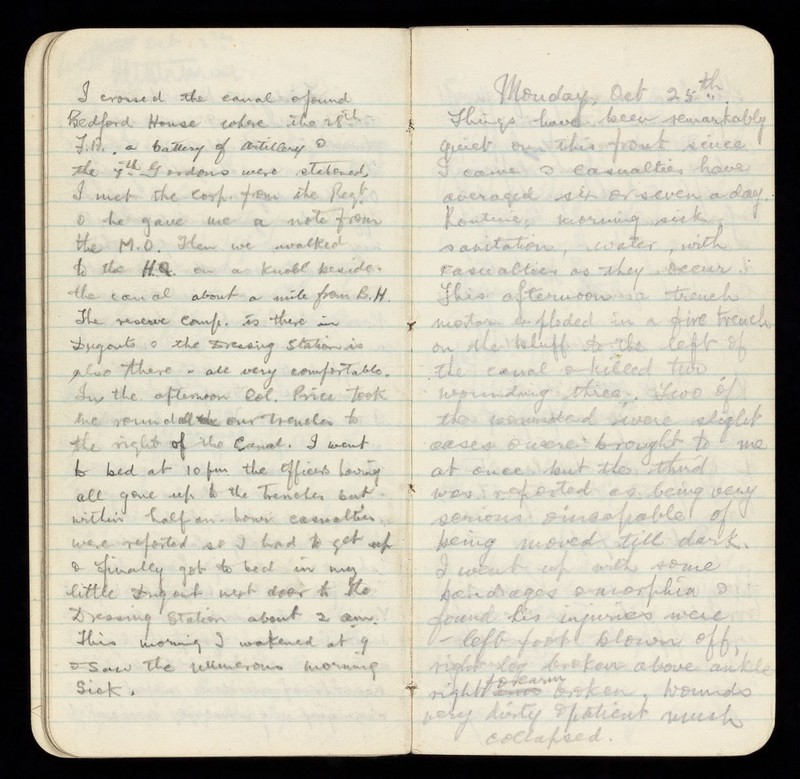 I crossed the canal & found
Bedford House where the 28th
F.A., a battery of artillery &
the 7th Gordons were stationed,
I met the Corp. from the Regt.
& he gave me a note from
the M.O. Then we walked
to the H.Q. on a knoll beside
the canal about a mile from B.H.
The reserve Comp. is there in
Dugouts & the Dressing Station is
also there - all very comfortable.
In the afternoon Col. Price took
me round all the our trenches to
the right of the Canal. I went
to bed at 10 pm the officers having
all gone up to the Trenches but
within half an hour casualties
were reported so I had to get up
& finally got to bed in my
little Dugout next door to the
Dressing Station about 2 am.
This morning I wakened at 9
& saw the numerous morning
Sick.
Monday, Oct 25th.
Things have been remarkably
quiet on this front since
I came & casualties have
averaged six or seven a day.
Routine, morning sick,
sanitation, water, with
casualties as they occur.
This afternoon a trench
mortar exploded in a fire trench
on the bluff to the left of
the canal & killed two
wounding three. Two of
the wounded were slight
cases & were brought to me
at once but the third
was reported as being very
serious & incapable of
being moved till dark.
I went up with some
bandages & morphia &
found his injuries were
- left foot blown off,
right leg broken above ankle
right forearm broken, wounds
very dirty & patient much
collapsed.